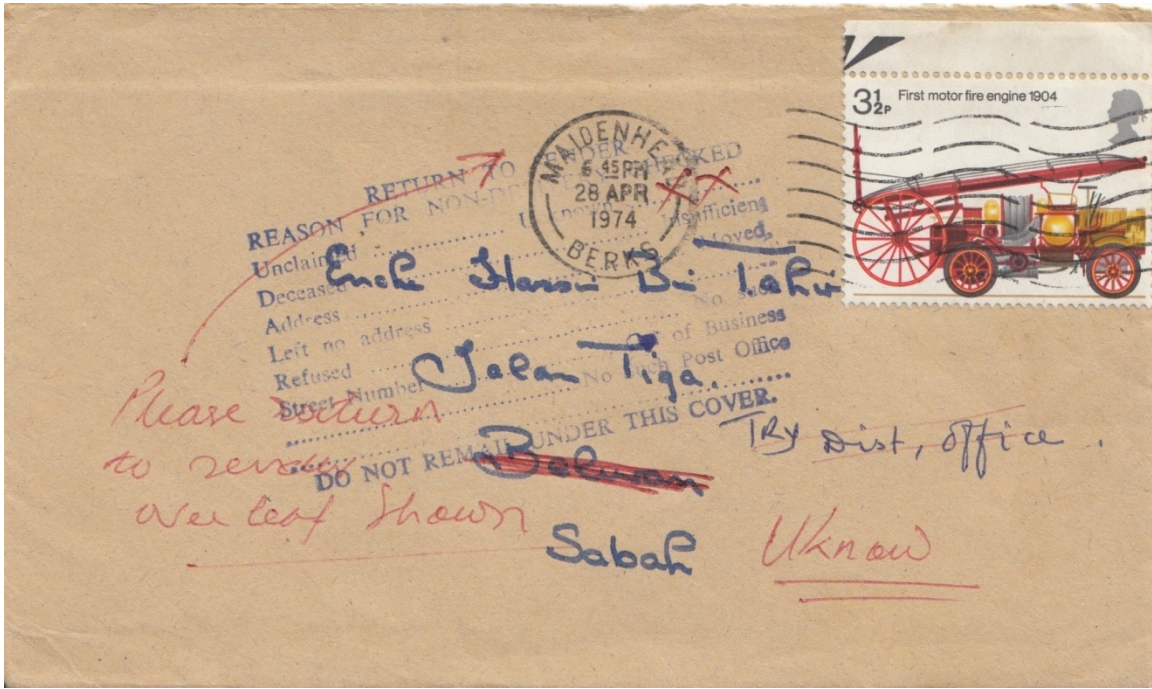 3½P First motor fire engine 1904
MAIDENHEAD
6 45 PM
28 APR
1974
BERKS
RETURN TO SENDER CHECKED
REASON FOR NON-DE
Unclaimed .......... Unknown ..........
Deceased .......... Insufficient
Address .......... Moved,
Left no address .......... No such
Refused .......... of Business
Street Number .......... No such Post Office
DO NOT REMAIL UNDER THIS COVER.
Enche Hassin Bin Tahir
Jalan Tiga.
Sabah
TRY Dist, office.
Please return
to sender
over leaf shown
Uknow
XX